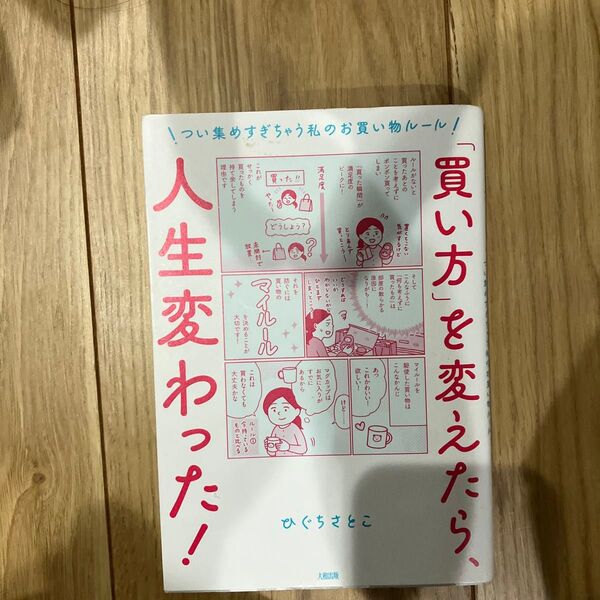 つい集めすぎちゃう私のお買い物ルール!
「買い方」を変えたら、
人生変わった!
ルールがないと
買ったあとの
ことも考えずに
ポンポン買って
しまい
「買った瞬間」が
満足度の
ピークに!
満足度
買った!!
やった
どうしよう?
未開封で
放置
これが
せっかく
買ったものを
持て余してしまう
理由です
そして
こんなふうに
「何も考えずに
買ったもの」は
部屋の散らかる
原因に
なりがち…
それを
防ぐには
買い物の
マイルール
を決めることが
大切です!
マイルールを
駆使した買い物は
こんなかんじ
あっ
これかわいい!
欲しい!
けど…
マグカップは
お気に入りが
すでに
あるから
これは
買わなくても
大丈夫かな
ルール①
今持っている
ものと比べる
ひぐちさとこ
大和出版